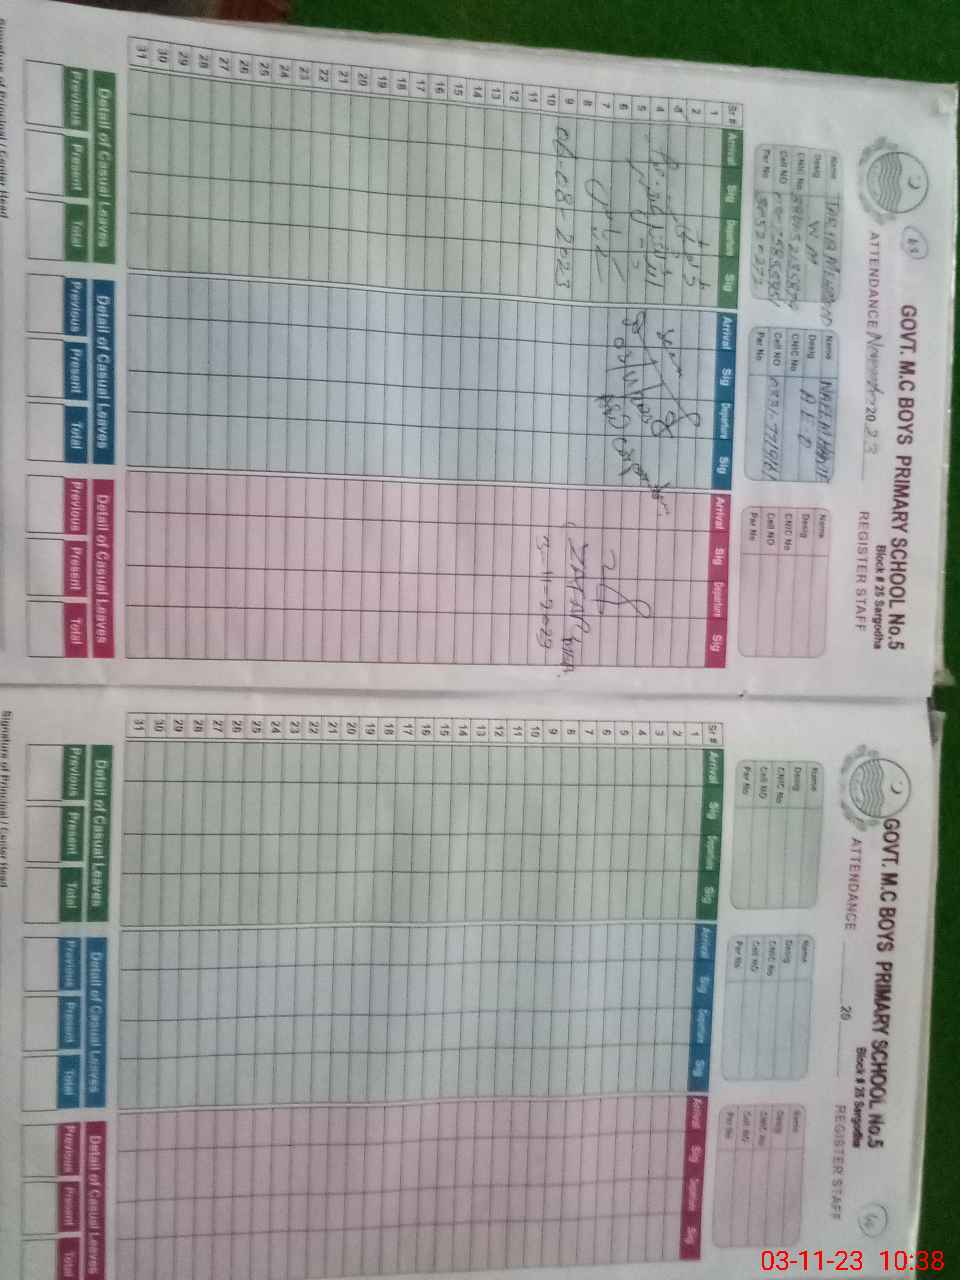 GOVT. M.C BOYS PRIMARY SCHOOL No.5
Block # 25 Sargodha
ATTENDANCE November 2023 REGISTER STAFF
Name
Desig W M
CNIC No
Cell NO
Per No
Name NAEEM
Desig A E O
CNIC No
Cell NO
Per No
Name
Desig
CNIC No
Cell NO
Per No
Sr # Arrival Sig Departure Sig Arrival Sig Departure Sig Arrival Sig Departure Sig
1
2
3
4
5
6
7
8
9
10
11
12
13
14
15
16
17
18
19
20
21
22
23
24
25
26
27
28
29
30
31
08-2023
ZAFAR
Detail of Casual Leaves Detail of Casual Leaves Detail of Casual Leaves
Previous Present Total Previous Present Total Previous Present Total
Signature of Principal / Center Head
GOVT. M.C BOYS PRIMARY SCHOOL No.5
Block # 25 Sargodha
ATTENDANCE 20 REGISTER STAFF
Name
Desig
CNIC No
Cell NO
Per No
Name
Desig
CNIC No
Cell NO
Per No
Name
Desig
CNIC No
Cell NO
Per No
Sr # Arrival Sig Departure Sig Arrival Sig Departure Sig Arrival Sig Departure Sig
1
2
3
4
5
6
7
8
9
10
11
12
13
14
15
16
17
18
19
20
21
22
23
24
25
26
27
28
29
30
31
Detail of Casual Leaves Detail of Casual Leaves Detail of Casual Leaves
Previous Present Total Previous Present Total Previous Present Total
Signature of Principal / Center Head
03-11-23 10:38